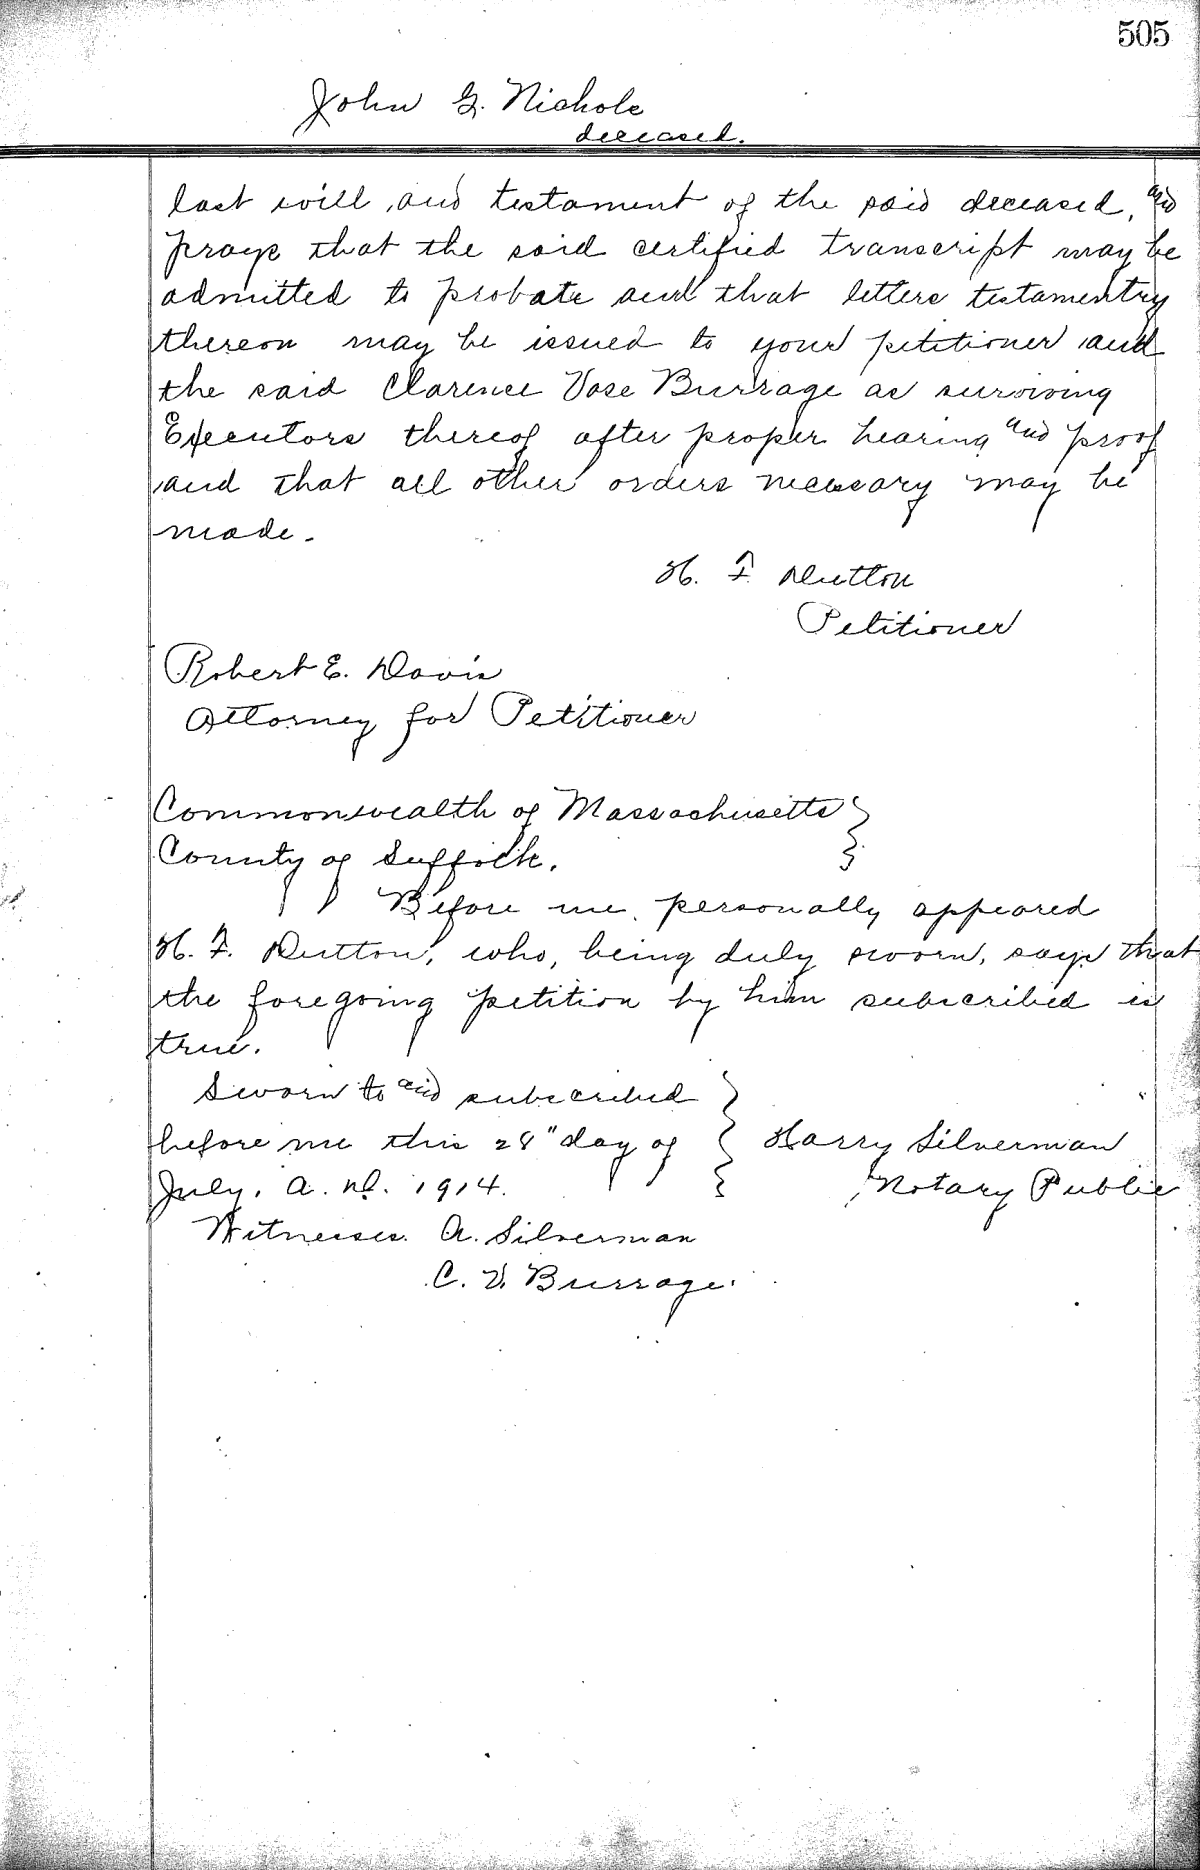 505
John G. Nichols
deceased.
last will and testament of the said deceased, and
prays that the said certified transcript may be
admitted to probate and that letters testamentry
thereon may be issued to your petitioner and
the said Clarence Vose Burrage as surviving
Executors thereof after proper hearing and proof
and that all other orders necessary may be
made.
H. F. Dutton
Petitioner
Robert E. Davis
Attorney for Petitioner
Commonwealth of Massachusetts }
County of Suffolk. }
Before me personally appeared
H. F. Dutton, who, being duly sworn, says that
the foregoing petition by him subscribed is
true.
Sworn to and subscribed
before me this 28" day of } Harry Silverman
July, A. D. 1914. Notary Public
Witnesses. A. Silverman
C. V. Burrage.